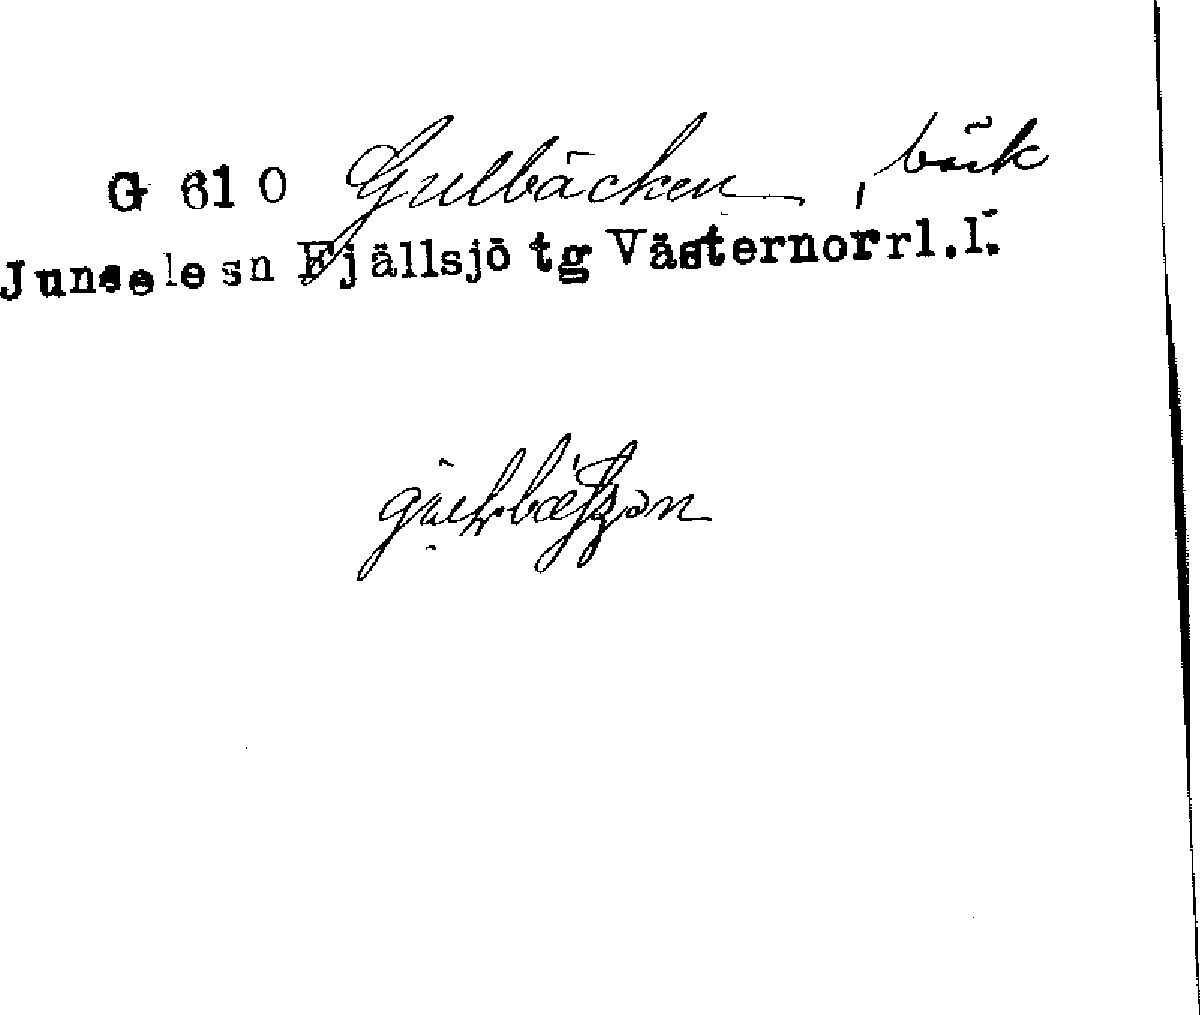 G 61 0 Gulbäcken, bäck
Junsele sn Fjällsjö tg Västernorrl.l.